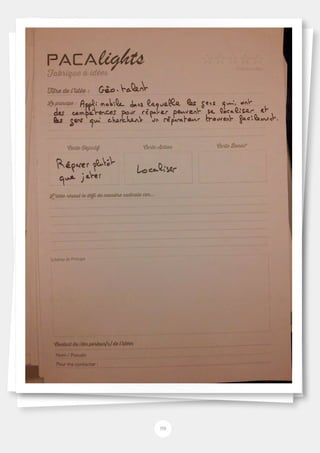 PACAlights
Fabrique à idées
Titre de l'idée : Géo.talent
Le principe : Appli mobile dans laquelle les gens qui ont
des compétences pour réparer peuvent se localiser et
les gens qui cherchent un réparateur trouvent facilement.
Carte Objectif Carte Action Carte Bonus
Réparer plutôt
que jeter
Localiser
L'idée résout le défi de manière
Schéma de Principe
Contact du/des porteur/s/ de l'idée
Nom / Pseudo
Pour me contacter :